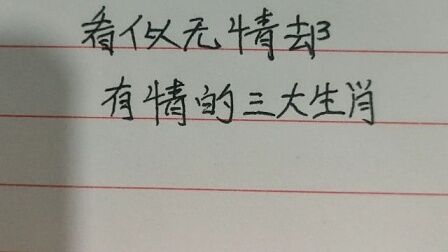 看似无情却
有情的三大生肖